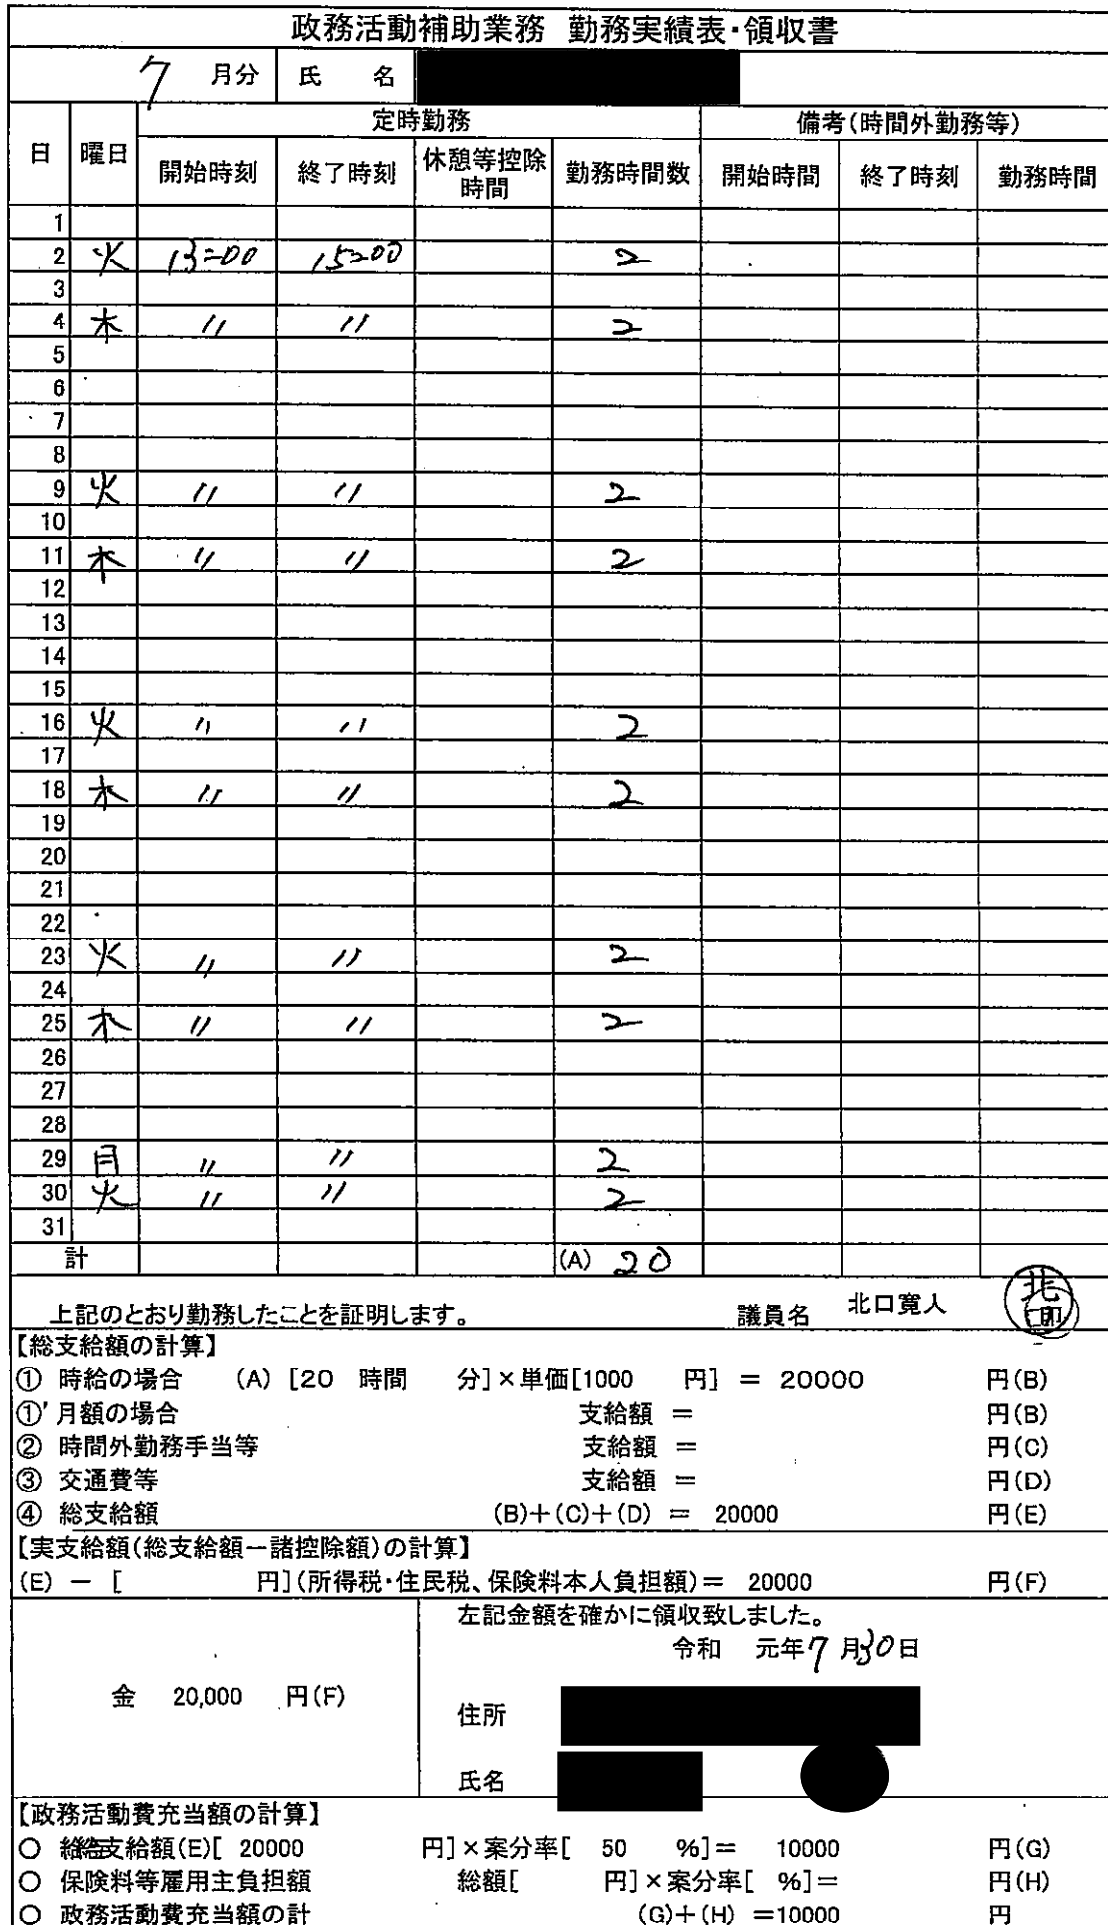 政務活動補助業務 勤務実績表・領収書
7 月分 氏 名
日 曜日 定時勤務 備考(時間外勤務等)
開始時刻 終了時刻 休憩等控除時間 勤務時間数 開始時間 終了時刻 勤務時間
1
2 火 13:00 15:00 2
3
4 木 〃 〃 2
5
6
7
8
9 火 〃 〃 2
10
11 木 〃 〃 2
12
13
14
15
16 火 〃 〃 2
17
18 木 〃 〃 2
19
20
21
22
23 火 〃 〃 2
24
25 木 〃 〃 2
26
27
28
29 月 〃 〃 2
30 火 〃 〃 2
31
計 (A) 20
上記のとおり勤務したことを証明します。 議員名 北口寛人 北 印
【総支給額の計算】
① 時給の場合 (A) [20 時間 分]×単価[1000 円] = 20000 円(B)
①'月額の場合 支給額 = 円(B)
② 時間外勤務手当等 支給額 = 円(C)
③ 交通費等 支給額 = 円(D)
④ 総支給額 (B)+(C)+(D) = 20000 円(E)
【実支給額(総支給額-諸控除額)の計算】
(E) - [ 円](所得税・住民税、保険料本人負担額)= 20000 円(F)
左記金額を確かに領収致しました。
令和 元年7月30日
金 20,000 円(F)
住所
氏名
【政務活動費充当額の計算】
○ 支給額(E)[ 20000 円]×案分率[ 50 %]= 10000 円(G)
○ 保険料等雇用主負担額 総額[ 円]×案分率[ %]= 円(H)
○ 政務活動費充当額の計 (G)+(H) =10000 円